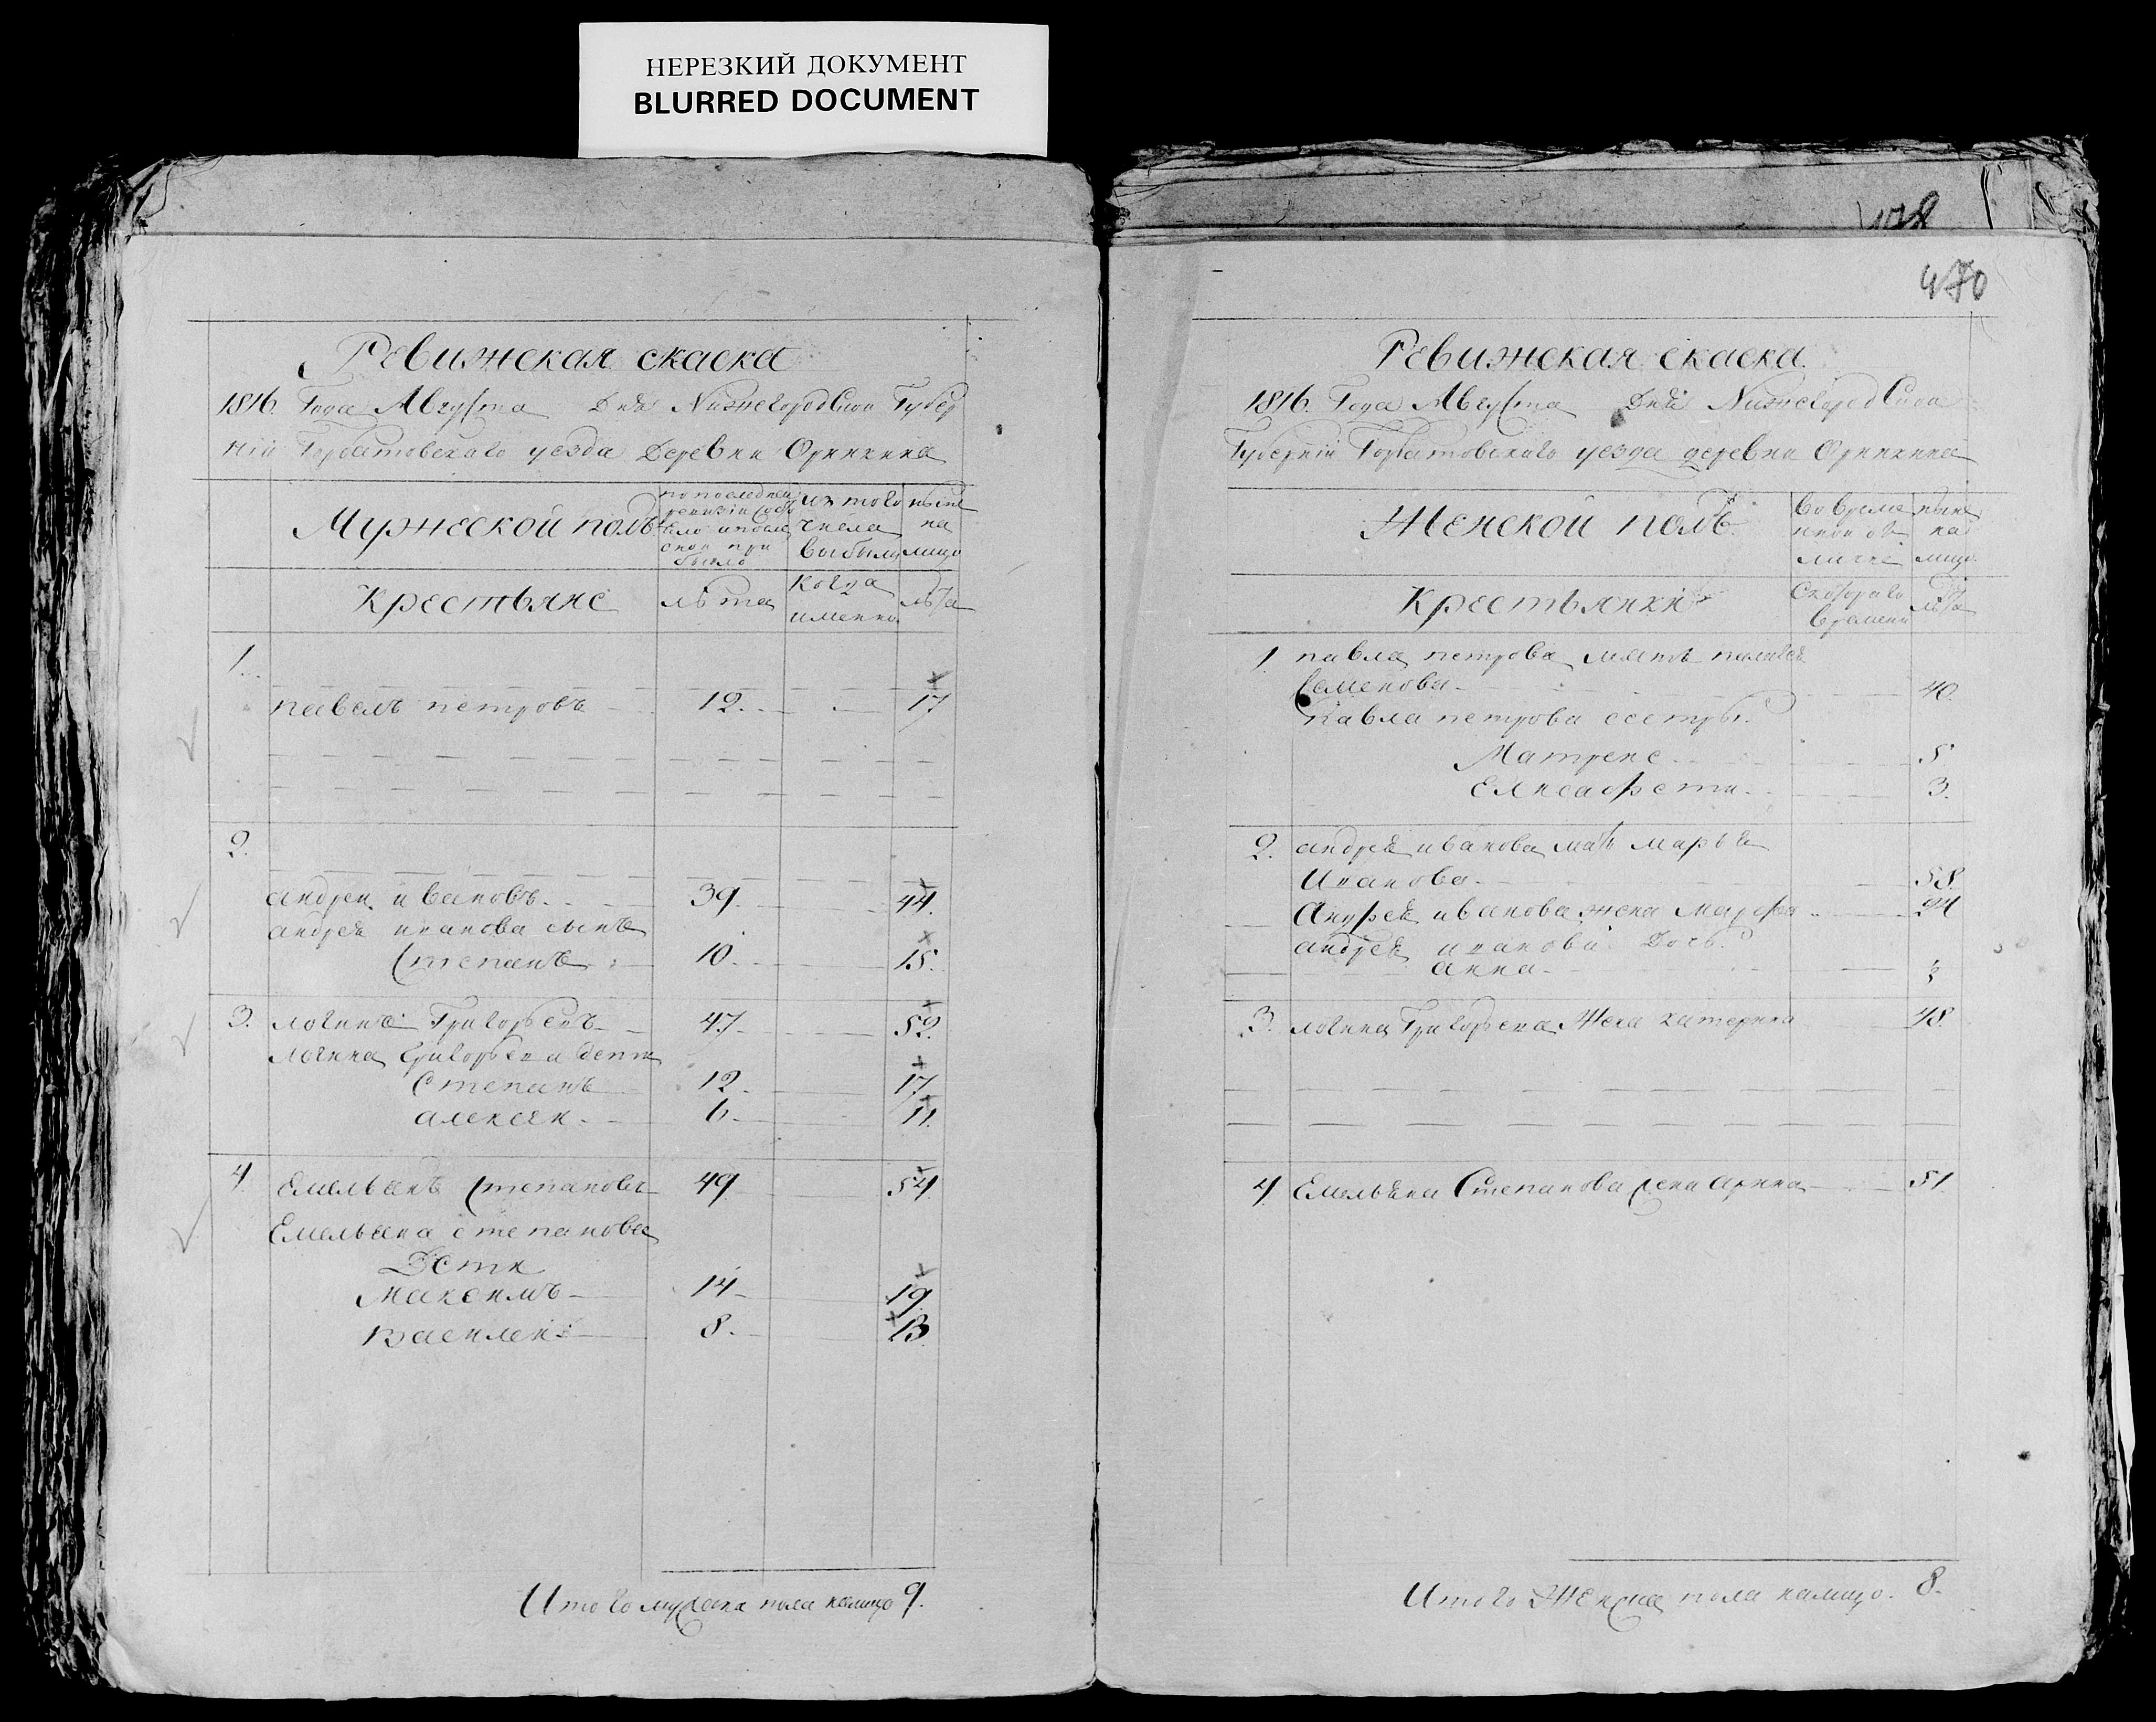 НЕРЕЗКИЙ ДОКУМЕНТ
BLURRED DOCUMENT
Ревижская скаска
1816. Года Августа Дня Нижегородской Губер
нии Горбатовскаго уезда Деревни Оринкина
Мужеской полъ
по последней ревизии состояло и после оной прибыло
изъ того числа выбыло
ныне на лицо
Крестьяне
лѣта
когда именно
лѣта
1.
павелъ петровъ 12. 17
2.
андреи ивановъ 39. 44.
андрея иванова сынъ
Степанъ 10. 15.
3. логинъ Григорьевъ 47. 52.
логина Григорьева дети
Степанъ 12. 17
алексеи 6. 11.
4 Емельянъ Степановъ 49 54
Емельяна степанова
Дети
Максимъ 14 19.
Василеи 8. 13.
Итого мужска пола налицо 9.
478
470
Ревижская скаска.
1816. Года Августа Дня Нижегородской
Губернии Горбатовскаго уезда деревни Оринкина
Женской полъ
во временной отлучке
ныне на лицо
Крестьянки
Скотораго времени
лѣта
1 павла петрова мать
Семенова 40.
Павла петрова сестры
Матрена 5
Елисафета 3.
2. андрея иванова мать марья
Иванова 58.
Андрея иванова жена марфа 24
андрея иванова Дочь
анна 3
3. логина Григорьева Жена катерина 48.
4. Емельяна Степанова жена арина 51.
Итого Женска пола налицо. 8.